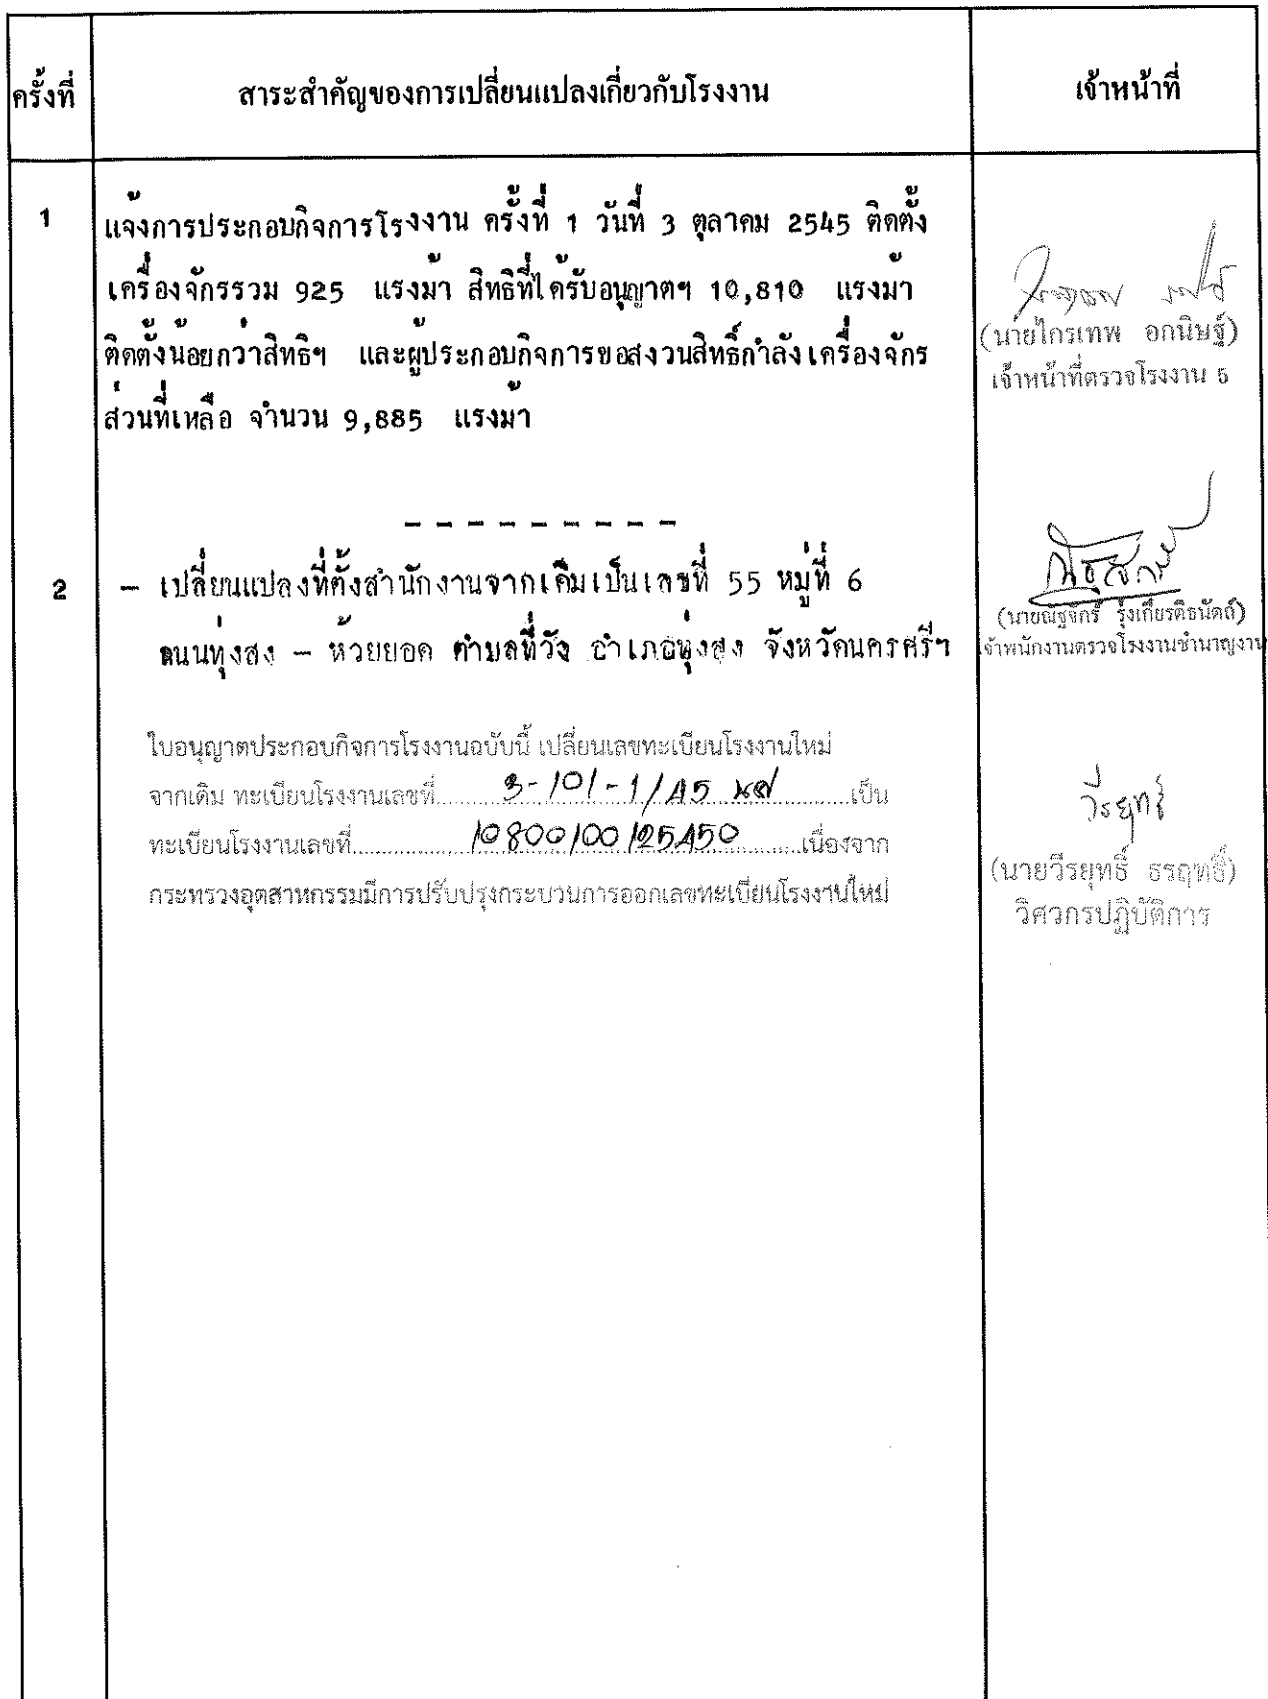 ครั้งที่
สาระสำคัญของการเปลี่ยนแปลงเกี่ยวกับโรงงาน
เจ้าหน้าที่
1
แจ้งการประกอบกิจการโรงงาน ครั้งที่ 1 วันที่ 3 ตุลาคม 2545 ติดตั้ง
เครื่องจักรรวม 925 แรงม้า สิทธิที่ได้รับอนุญาตฯ 10,810 แรงม้า
ติดตั้งน้อยกว่าสิทธิฯ และผู้ประกอบกิจการขอสงวนสิทธิ์กำลังเครื่องจักร
ส่วนที่เหลือ จำนวน 9,885 แรงม้า
(นายไกรเทพ อกนิษฐ์)
เจ้าหน้าที่ตรวจโรงงาน 5
- - - - - - - - -
2
- เปลี่ยนแปลงที่ตั้งสำนักงานจากเดิมเป็นเลขที่ 55 หมู่ที่ 6
ถนนทุ่งสง - ห้วยยอด ตำบลที่วัง อำเภอทุ่งสง จังหวัดนครศรีฯ
(นายณัฐจักร์ รุ่งเกียรติธนัตถ์)
เจ้าพนักงานตรวจโรงงานชำนาญงาน
ใบอนุญาตประกอบกิจการโรงงานฉบับนี้ เปลี่ยนเลขทะเบียนโรงงานใหม่
จากเดิม ทะเบียนโรงงานเลขที่ 3-101-1/45 นศ เป็น
ทะเบียนโรงงานเลขที่ 10800100125450 เนื่องจาก
กระทรวงอุตสาหกรรมมีการปรับปรุงกระบวนการออกเลขทะเบียนโรงงานใหม่
วีรยุทธิ์
(นายวีรยุทธิ์ ธรฤทธิ์)
วิศวกรปฏิบัติการ